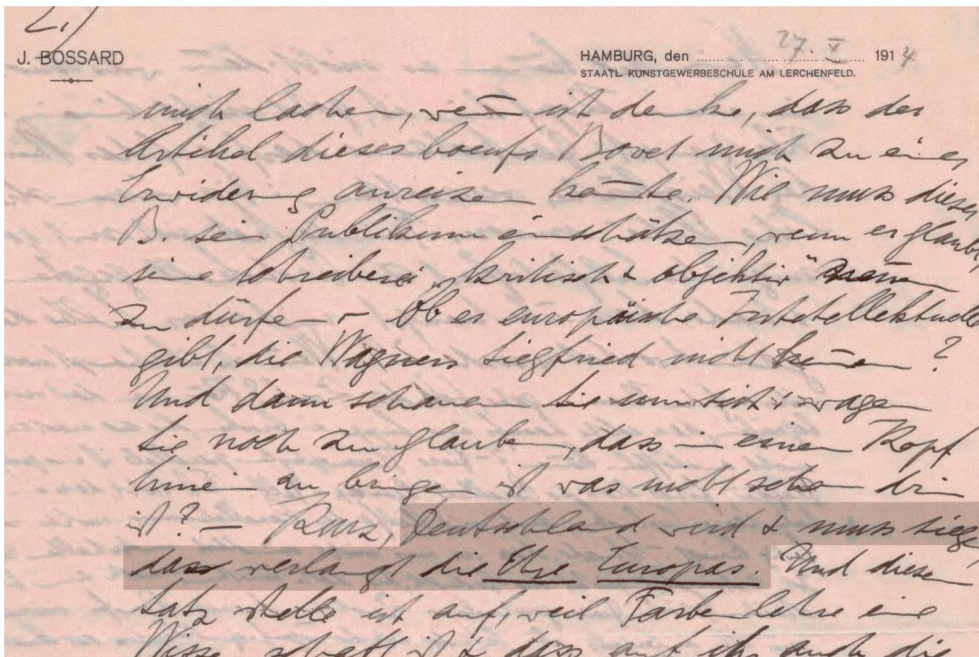 2.)
J. BOSSARD
HAMBURG, den 27. X 1914
STAATL. KUNSTGEWERBESCHULE AM LERCHENFELD.
mich lachen, wenn ich denke, dass der
Artikel dieses boeufs Bovet mich zu einer
Erwiderung anreizen könnte. Wie muss dieser
B. sein Publikum einschätzen, wenn er glaubt,
seine Schreiberei „kritisch & objektiv" nennen
zu dürfen – Ob es europäische Intellektuelle
gibt, die Wagners Siegfried nicht kennen?
Und dann schauen Sie um sich & wagen
Sie noch zu glauben, dass in einen Kopf
hinein zu bringen ist was nicht schon drin
ist? – Kurz, Deutschland wird & muss siegen
das verlangt die Ehre Europas. Und diesen
Satz stelle ich auf, weil Farbenlehre eine
Wissenschaft ist & dass auf ihr auch die